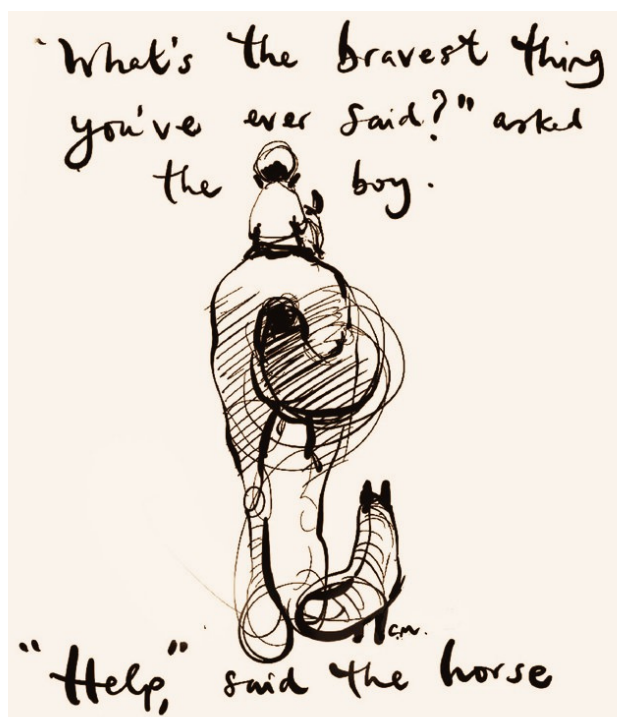 "What's the bravest thing
you've ever said?" asked
the boy.
C.M.
"Help," said the horse